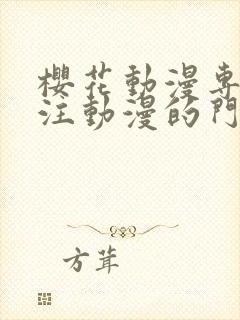 櫻花動漫專
注動漫的門
方茸